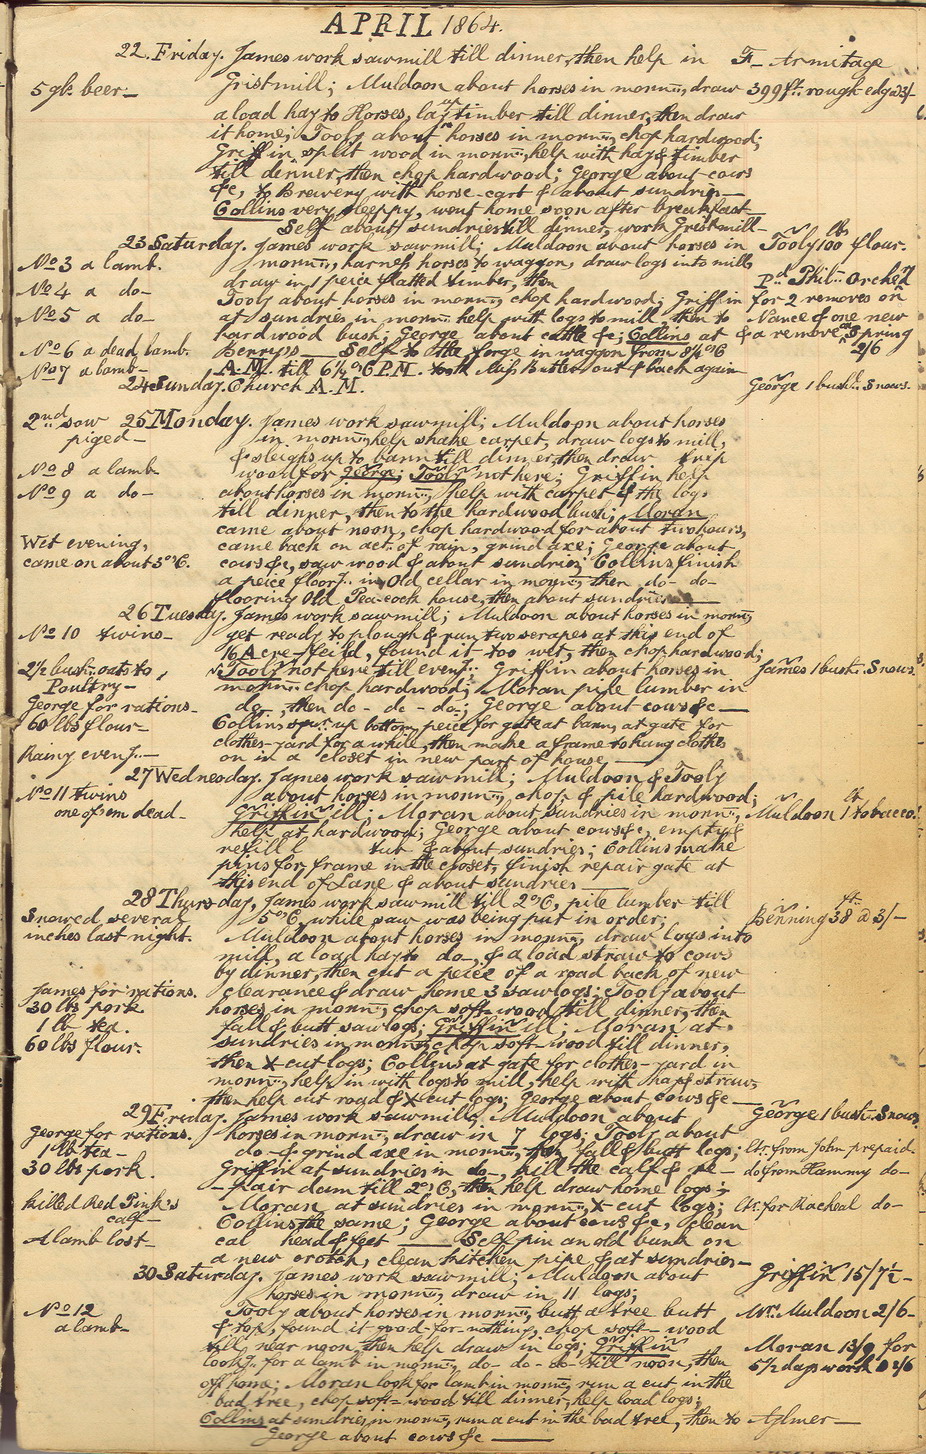 APRIL 1864.
22. Friday. James work sawmill till dinner, then help in F. Armitage
5 gls. beer - Gristmill; Muldoon about horses in morng., draw 399 ft. rough edg @ 3/-
a load hay to Horses, lay up timber till dinner, then draw
it home; Tooly about horses in morng., chop hardwood;
Griffin, split wood in morng., help with hay & timber
till dinner, then chop hardwood; George about cows
&c, to Brewery with horse-cart & about sundries -
Collins very sleepy, went home soon after breakfast -
Self about sundries till dinner, work Gristmill -
23 Saturday. James work sawmill; Muldoon about horses in Tooly 100 lbs flour.
No 3 a lamb. morng., harness horses to waggon, draw logs into mill,
No 4 a do - draw in 1 peice flatted timber, then Pd. Phil.
Tooly about horses in morng., chop hardwood; Griffin for 2 removes on
No 5 a do - at sundries in morng. help with logs to mill then to Nance & one new
hardwood bush; George about cattle &c; Collins at & a remove on Spring
No 6 a dead lamb. Berry's - Self to the forge in waggon from 8½ o'C 2/6
No 7 a lamb - A.M. till 6½ o'C P.M. took Miss Butler out & back again
24 Sunday. Church A.M. George 1 bush. Snows.
2nd sow 25 Monday. James work sawmill; Muldoon about horses
piged - in morng., help shake carpet, draw logs to mill,
& sleighs up to barn till dinner, then draw
No 8 a lamb wood for George; Tooly not here; Griffin help
No 9 a do - about horses in morng., help with carpet & the logs
till dinner, then to the hardwood bush; Moran
came about noon, chop hardwood for about two hours,
Wet evening, came back on act. of rain, grind axe; George about
came on about 5 o'C. cows &c, saw wood & about sundries; Collins finish
a peice floorg. in Old cellar in morng. then do - do -
flooring Old Pea-cock house, then about sundries -
26 Tuesday. James work sawmill; Muldoon about horses in morng.
No 10 twins - get ready to plough & run two scrapes at this end of
16 Acre-feild, found it too wet, then chop hardwood;
2½ bush. oats to Tooly not here till eveng.; Griffin about horses in James 1 bush. Snows.
Poultry - morng. chop hardwood; Moran pile lumber in
George for rations - do, then do - do - do; George about cows &c -
60 lbs flour - Collins up bottom peice for gate at barn, at gate for
clothes-yard for a while, then make a frame to hang clothes
Rainy eveng. - on in a closet in new part of house -
27 Wednesday. James work sawmill; Muldoon & Tooly
No 11 twins about horses in morng., chop & pile hardwood;
one of em dead - Griffin ill; Moran about sundries in morng., Muldoon 1 lb tobacco.
help at hardwood; George about cows &c, emptied
refill tub & about sundries; Collins make
pins for frame in the closet, finish repair gate at
this end of Lane & about sundries -
28 Thursday, James work sawmill till 2 o'C, pile lumber till
Snowed several 5 o'C, while saw was being put in order; Benning 38 ft. @ 3/-
inches last night. Muldoon about horses in morng., draw logs into
mill, a load hay to do -, & a load straw to cows
by dinner, then cut a peice of a road back of new
James for rations. clearance & draw home 3 sawlogs; Tooly about
30 lbs pork horses in morng., chop soft-wood till dinner, then
1 lb tea. fall & butt sawlogs; Griffin ill; Moran at
60 lbs flour. sundries in morng., chop soft-wood till dinner,
then X-cut logs; Collins at gate for clothes-yard in
morng., help in with logs to mill, help with hay & straw,
then help cut road & X-cut logs; George about cows &c -
29 Friday. James work sawmill; Muldoon about George 1 bush. Snows.
George for rations. horses in morng., draw in 7 logs; Tooly about
1 lb tea - do -, grind axe in morng., then fall & butt logs; Ltr. from John prepaid.
30 lbs pork. Griffin at sundries in do -, kill the calf & re- do from Hammy do -
-pair dam till 2 o'C, then help draw home logs;
Killed Red Pink's Moran at sundries in morng., X-cut logs; Ltr. for Racheal do -
calf - Collins the same; George about cows &c, clean
A lamb lost - head & feet - Self pin an old bunk on
a new crotch, clean kitchen pipe & at sundries -
30 Saturday. James work sawmill; Muldoon about Griffin 15/7½ -
horses in morng., draw in 11 logs;
No 12 Tooly about horses in morng., butt a tree butt Mrs. Muldoon 2/6 -
a lamb - & top, found it good-for-nothing, chop soft-wood
till near noon, then help draw in logs; Griffin Moran 13/9 for
lookg. for a lamb in morng., do - do - do till noon, then 5½ days work @ 2/6
off home; Moran look for lamb in morng., run a cut in the
bad tree, chop soft-wood till dinner, help load logs;
Collins at sundries in morng., run a cut in the bad tree, then to Aylmer -
George about cows &c -